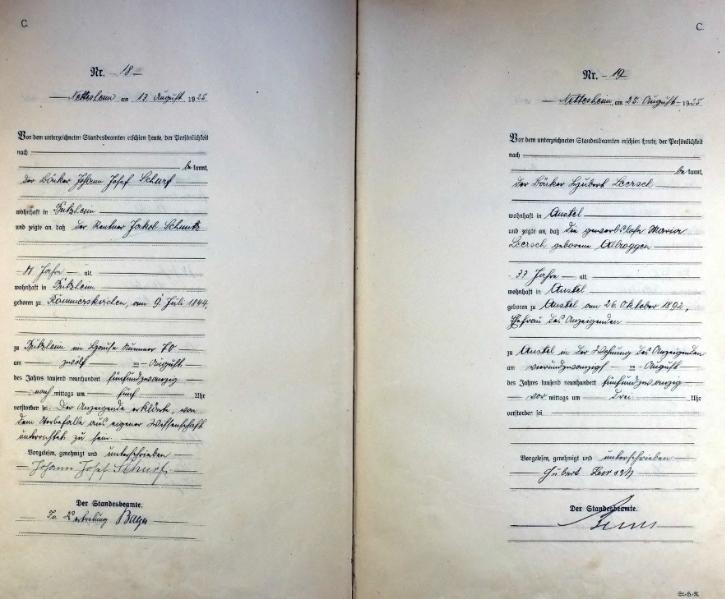 C.
Nr. 18
Nettesheim am 13 August 1925
Vor dem unterzeichneten Standesbeamten erschien heute, der Persönlichkeit
nach
be kannt,
der Bäcker Johann Josef Scharf
wohnhaft in Bützheim
und zeigte an, daß der Rentner Jakob
Jahre alt
wohnhaft in Bützheim
geboren zu Rommerskirchen, am 9. Juli 1844,
zu Bützheim im Hause Nummer 70
am zwölf ten August
des Jahres tausend neunhundert fünfundzwanzig
nach mittags um fünf Uhr
verstorben sei. Der Anzeigende erklärte, von
dem Sterbefalle aus eigener Wissenschaft
unterrichtet zu sein.
Vorgelesen, genehmigt und unterschrieben
Johann Josef Scharf
Der Standesbeamte.
In Vertretung
C.
Nr. 19
Nettesheim am 25. August 1925
Vor dem unterzeichneten Standesbeamten erschien heute, der Persönlichkeit
nach
be kannt,
der Bäcker Hubert
wohnhaft in Anstel
und zeigte an, daß die gewerblose Maria
geborene
Jahre alt
wohnhaft in Anstel
geboren zu Anstel am 26. Oktober 1892,
Ehefrau des Anzeigenden
zu Anstel in der Wohnung des Anzeigenden
am vierundzwanzigsten August
des Jahres tausend neunhundert fünfundzwanzig
vor mittags um drei Uhr
verstorben sei
Vorgelesen, genehmigt und unterschrieben
Hubert
Der Standesbeamte.